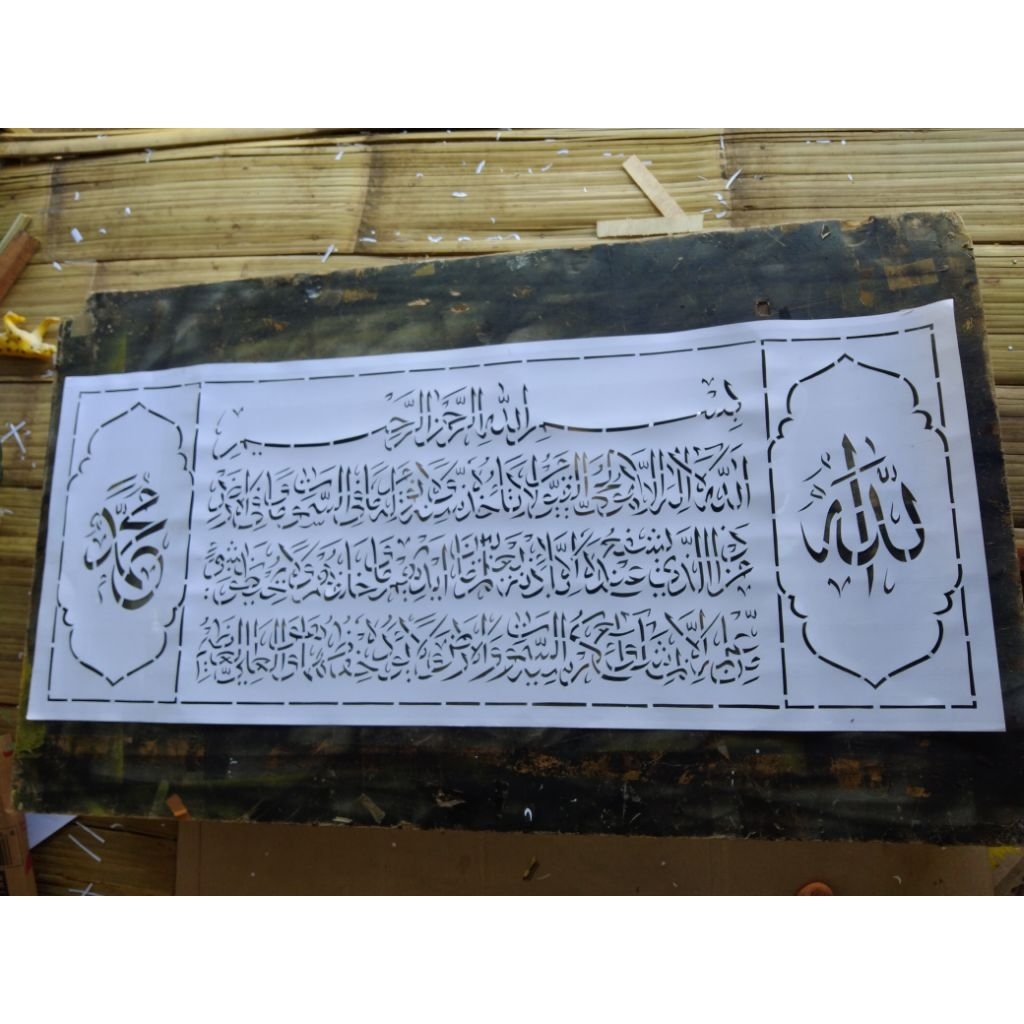 الله
بسم الله الرحمن الرحيم
الله لا اله الا هو الحي القيوم لا تاخذه سنة ولا نوم له ما في السموات وما في الارض
من ذا الذي يشفع عنده الا باذنه يعلم ما بين ايديهم وما خلفهم ولا يحيطون بشئ
من علمه الا بما شاء وسع كرسيه السموات والارض ولا يؤده حفظهما وهو العلي العظيم
محمد